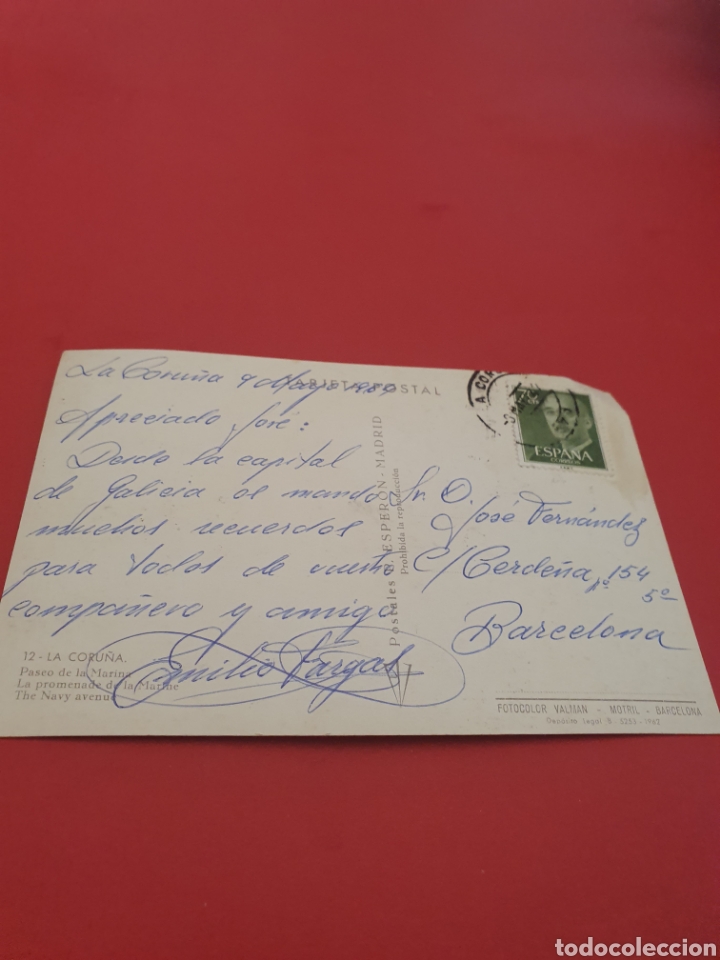 La Coruña 9 Mayo
TARJETA POSTAL
Apreciado José:
Desde la capital
de Galicia os mando
muchos recuerdos
para todos de vuestro
compañero y amigo
Emilio Vargas
12 - LA CORUÑA.
Paseo de la Marina
La promenade de la Marine
The Navy avenue
Postales ESPERÓN - MADRID
Prohibida la reproducción
A COR
ESPAÑA
Sr. D.
José Fernández
C/ Cerdeña nº 154
5º
Barcelona
FOTOCOLOR VALMAN - MOTRIL - BARCELONA
Depósito legal B.
todocoleccion